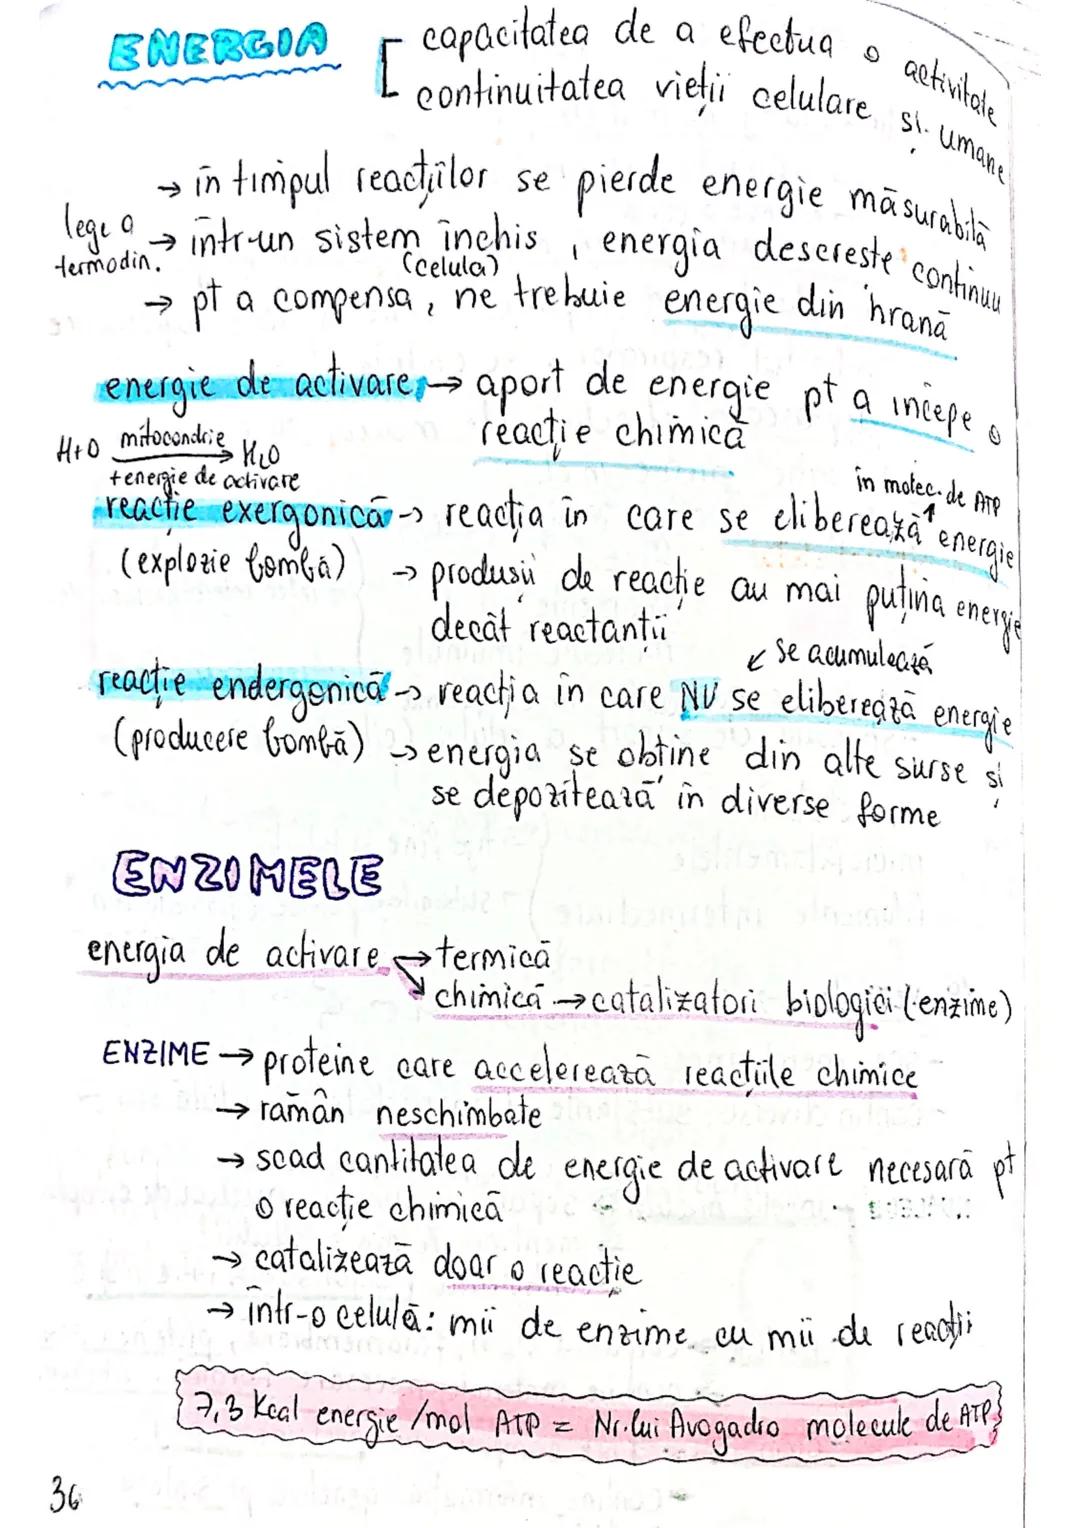 ENERGIA
capacitatea de a efectua o activitate
continuitatea vieții celulare și umane
→ în timpul reacțiilor se pierde energie măsurabilă
legea termodin. → într-un sistem închis, energia descrește continuu
(celula)
→ pt a compensa, ne trebuie energie din hrană
energie de activare → aport de energie pt a începe o
reacție chimică
H+O mitocondrie → H2O
+energie de activare
în molec. de ATP
reacție exergonică → reacția în care se eliberează energie
(explozie bombă) → produșii de reacție au mai puțină energie
decât reactanții
se acumulează
reacție endergonică → reacția în care NU se eliberează energie
(producere bombă) → energia se obține din alte surse și
se depozitează în diverse forme
ENZIMELE
energia de activare → termică
chimică → catalizatori biologici (enzime)
ENZIME → proteine care accelerează reacțiile chimice
→ rămân neschimbate
→ scad cantitatea de energie de activare necesară pt
o reacție chimică
→ catalizează doar o reacție
→ într-o celulă: mii de enzime cu mii de reacții
7,3 Kcal energie /mol ATP = Nr. lui Avogadro molecule de ATP
36